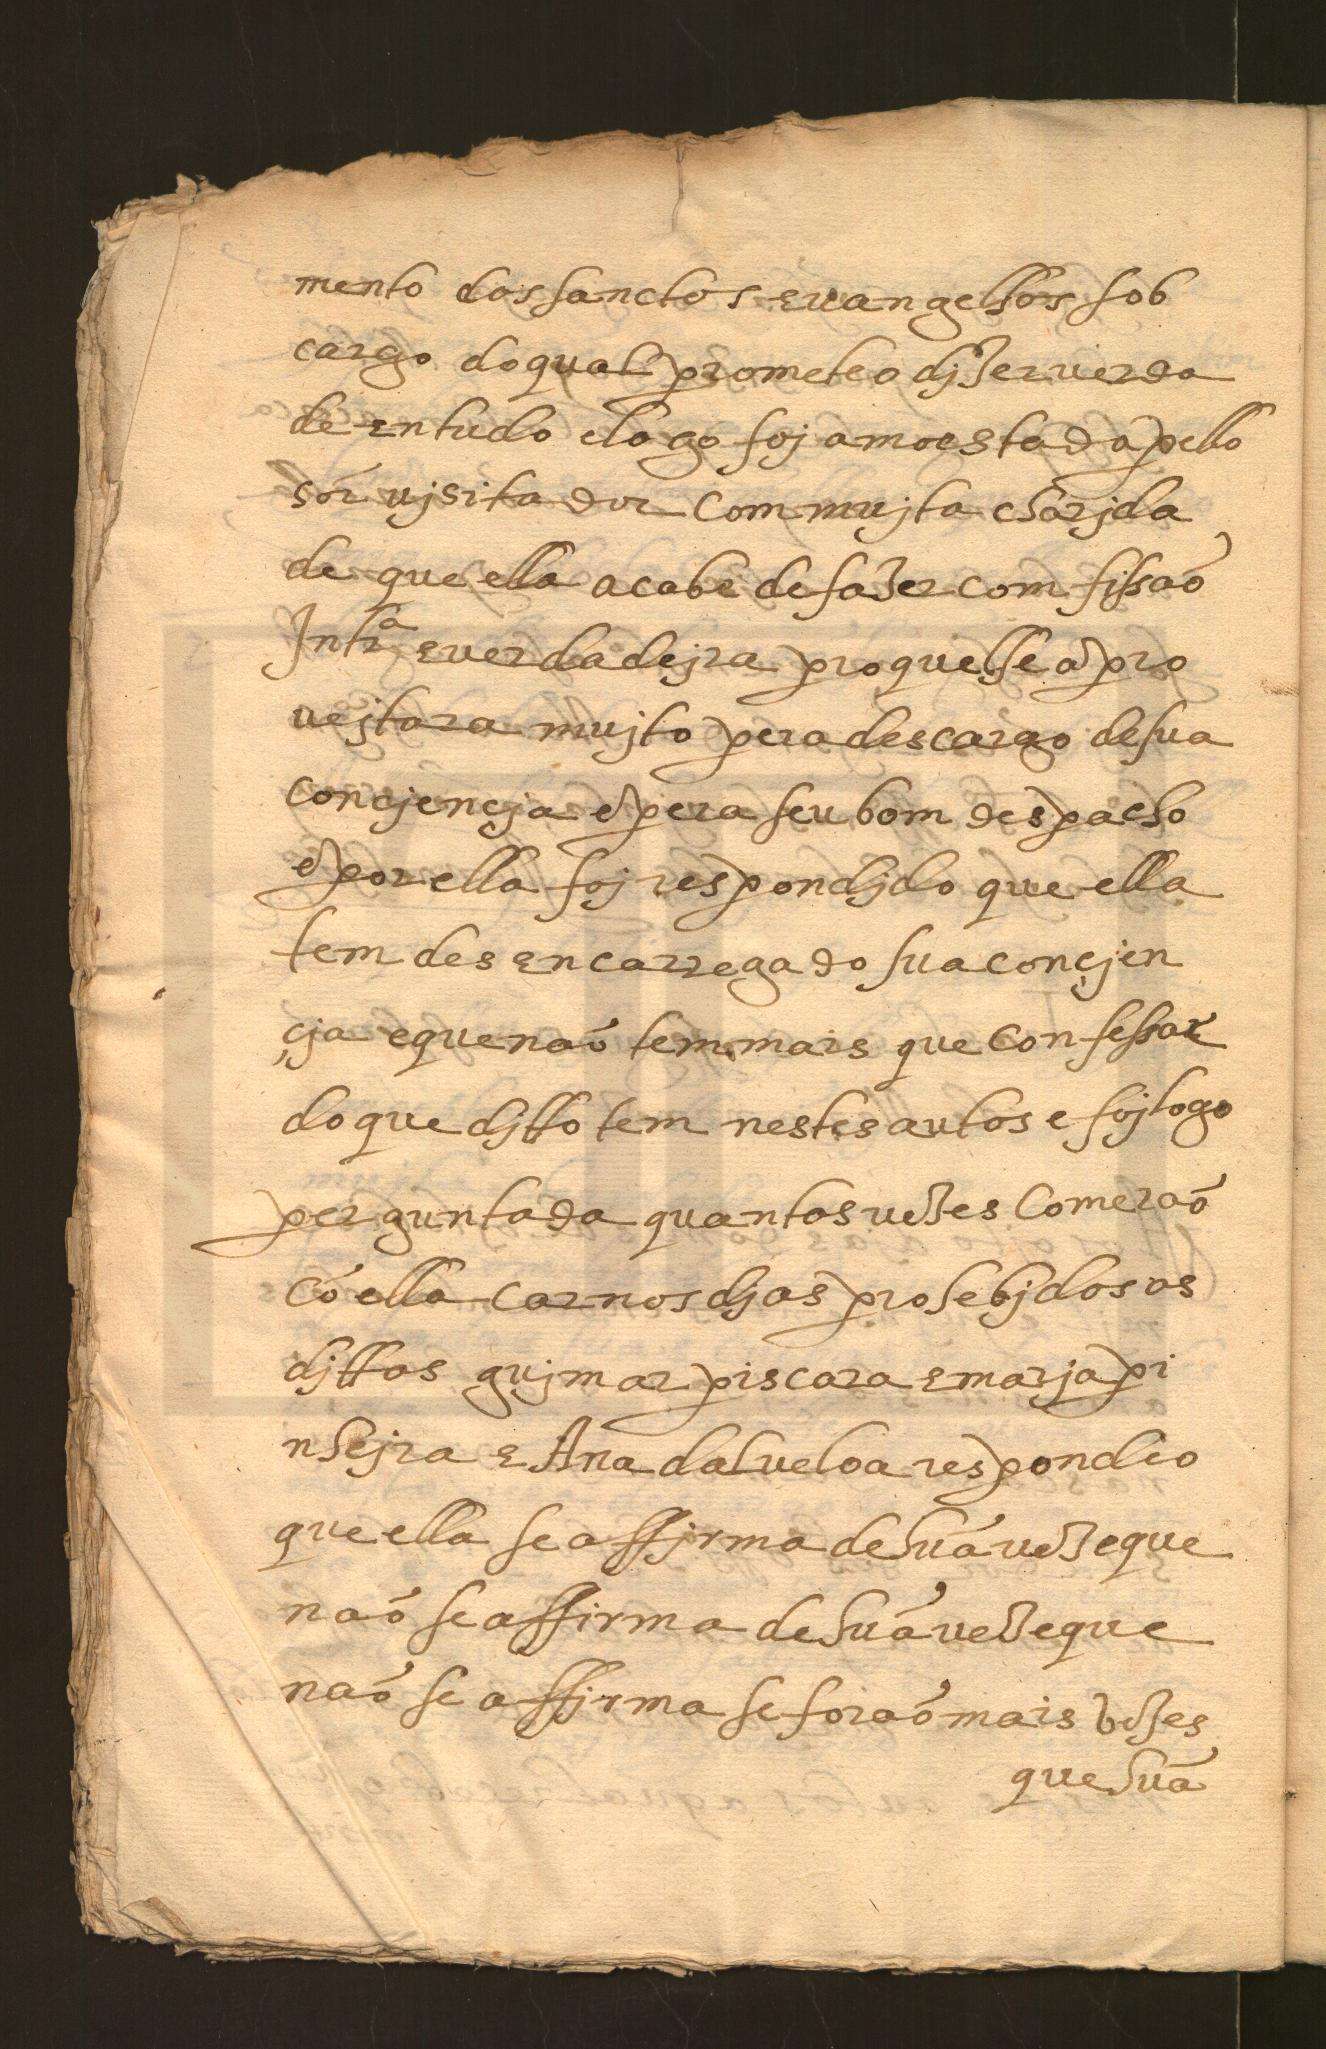 mento dos sanctos evangelhos sob
cargo do qual prometeo djzer verda
de en tudo e logo foj amoestada pello
sõr vjsitador com mujta charjda
de que ella acabe de fazer comfissaõ
Intrª e verdadejra proque lhe apro
vejtara mujto pera descargo de sua
concjencja e pera seu bom despacho
e por ella foj respondjdo que ella
tem desencarregado sua conçjen
çja e que naõ tem mais que confessar
do que djtto tem nestes autos e foj logo
perguntada quantas vezes comeraõ
cõ ella carnos djas prohebjdos as
djttas gujmar piscara e marja pi
nhejra e Ana dalveloa respondeo
que ella se affjrma de huã vez e que
naõ se affirma de huã vez e que
naõ se affjrma se foraõ mais vezes
que huã